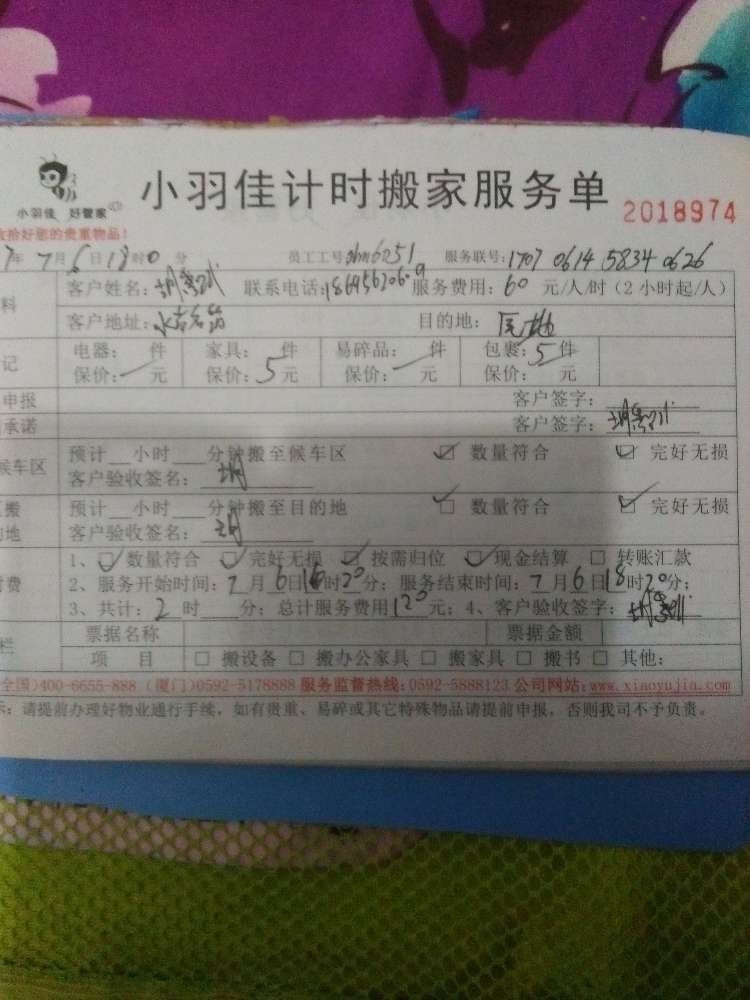 小羽佳计时搬家服务单
小羽佳 好管家
2018974
收拾好您的贵重物品!
7年7月6日18时0分 员工工号 服务联号:1707 0614 5834 0626
料 客户姓名: 联系电话: 服务费用:60元/人/时(2小时起/人)
客户地址: 目的地:
记 电器: 件 家具: 件 易碎品: 件 包裹:5件
保价: 元 保价:5元 保价: 元 保价: 元
申报 客户签字:
承诺 客户签字:
候车区 预计 小时 分钟搬至候车区 数量符合 完好无损
客户验收签名:胡
搬 预计 小时 分钟搬至目的地 数量符合 完好无损
的地 客户验收签名:胡
1、 数量符合 完好无损 按需归位 现金结算 转账汇款
付费 2、服务开始时间:7月6日16时20分; 服务结束时间:7月6日18时20分;
3、共计:2时 分; 总计服务费用120元; 4、客户验收签字:
栏 票据名称 票据金额
项目 搬设备 搬办公家具 搬家具 搬书 其他:
全国)400-6655-888 (厦门)0592-5178888 服务监督热线:0592-5888123 公司网站:www.xiaoyujia.com
示: 请提前办理好物业通行手续,如有贵重、易碎或其它特殊物品请提前申报,否则我司不予负责。